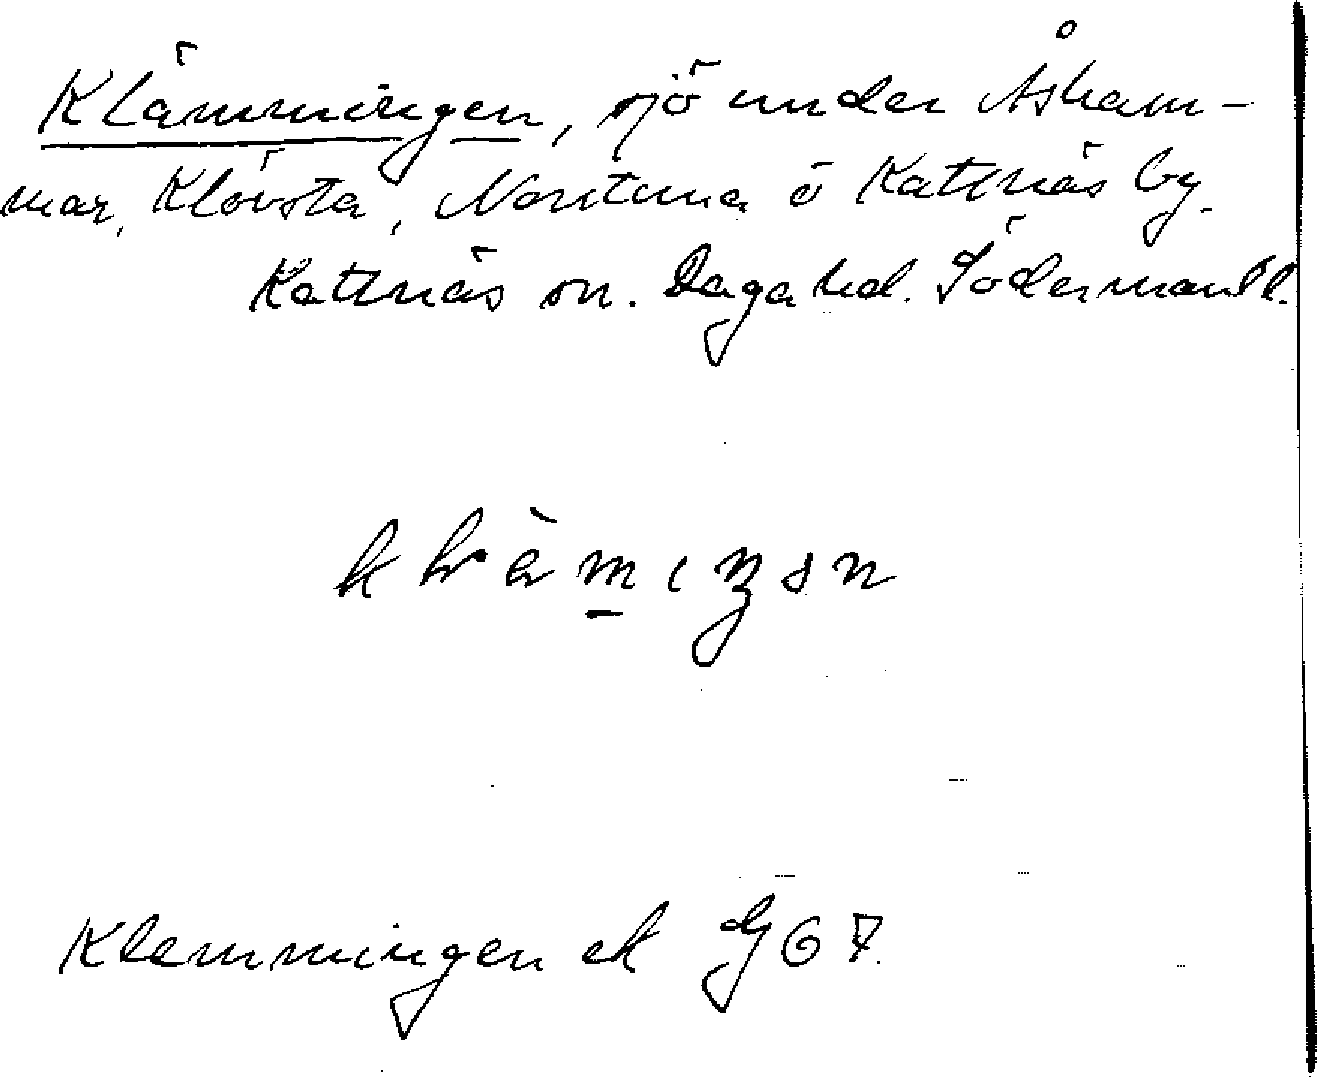 Klämmingen, sjö under Åsham-
mar, Klövsta, Norrtuna o Kattnäs by.
Kattnäs sn. Daga hd. Södermanl l.
Klemmingen ek J 67.